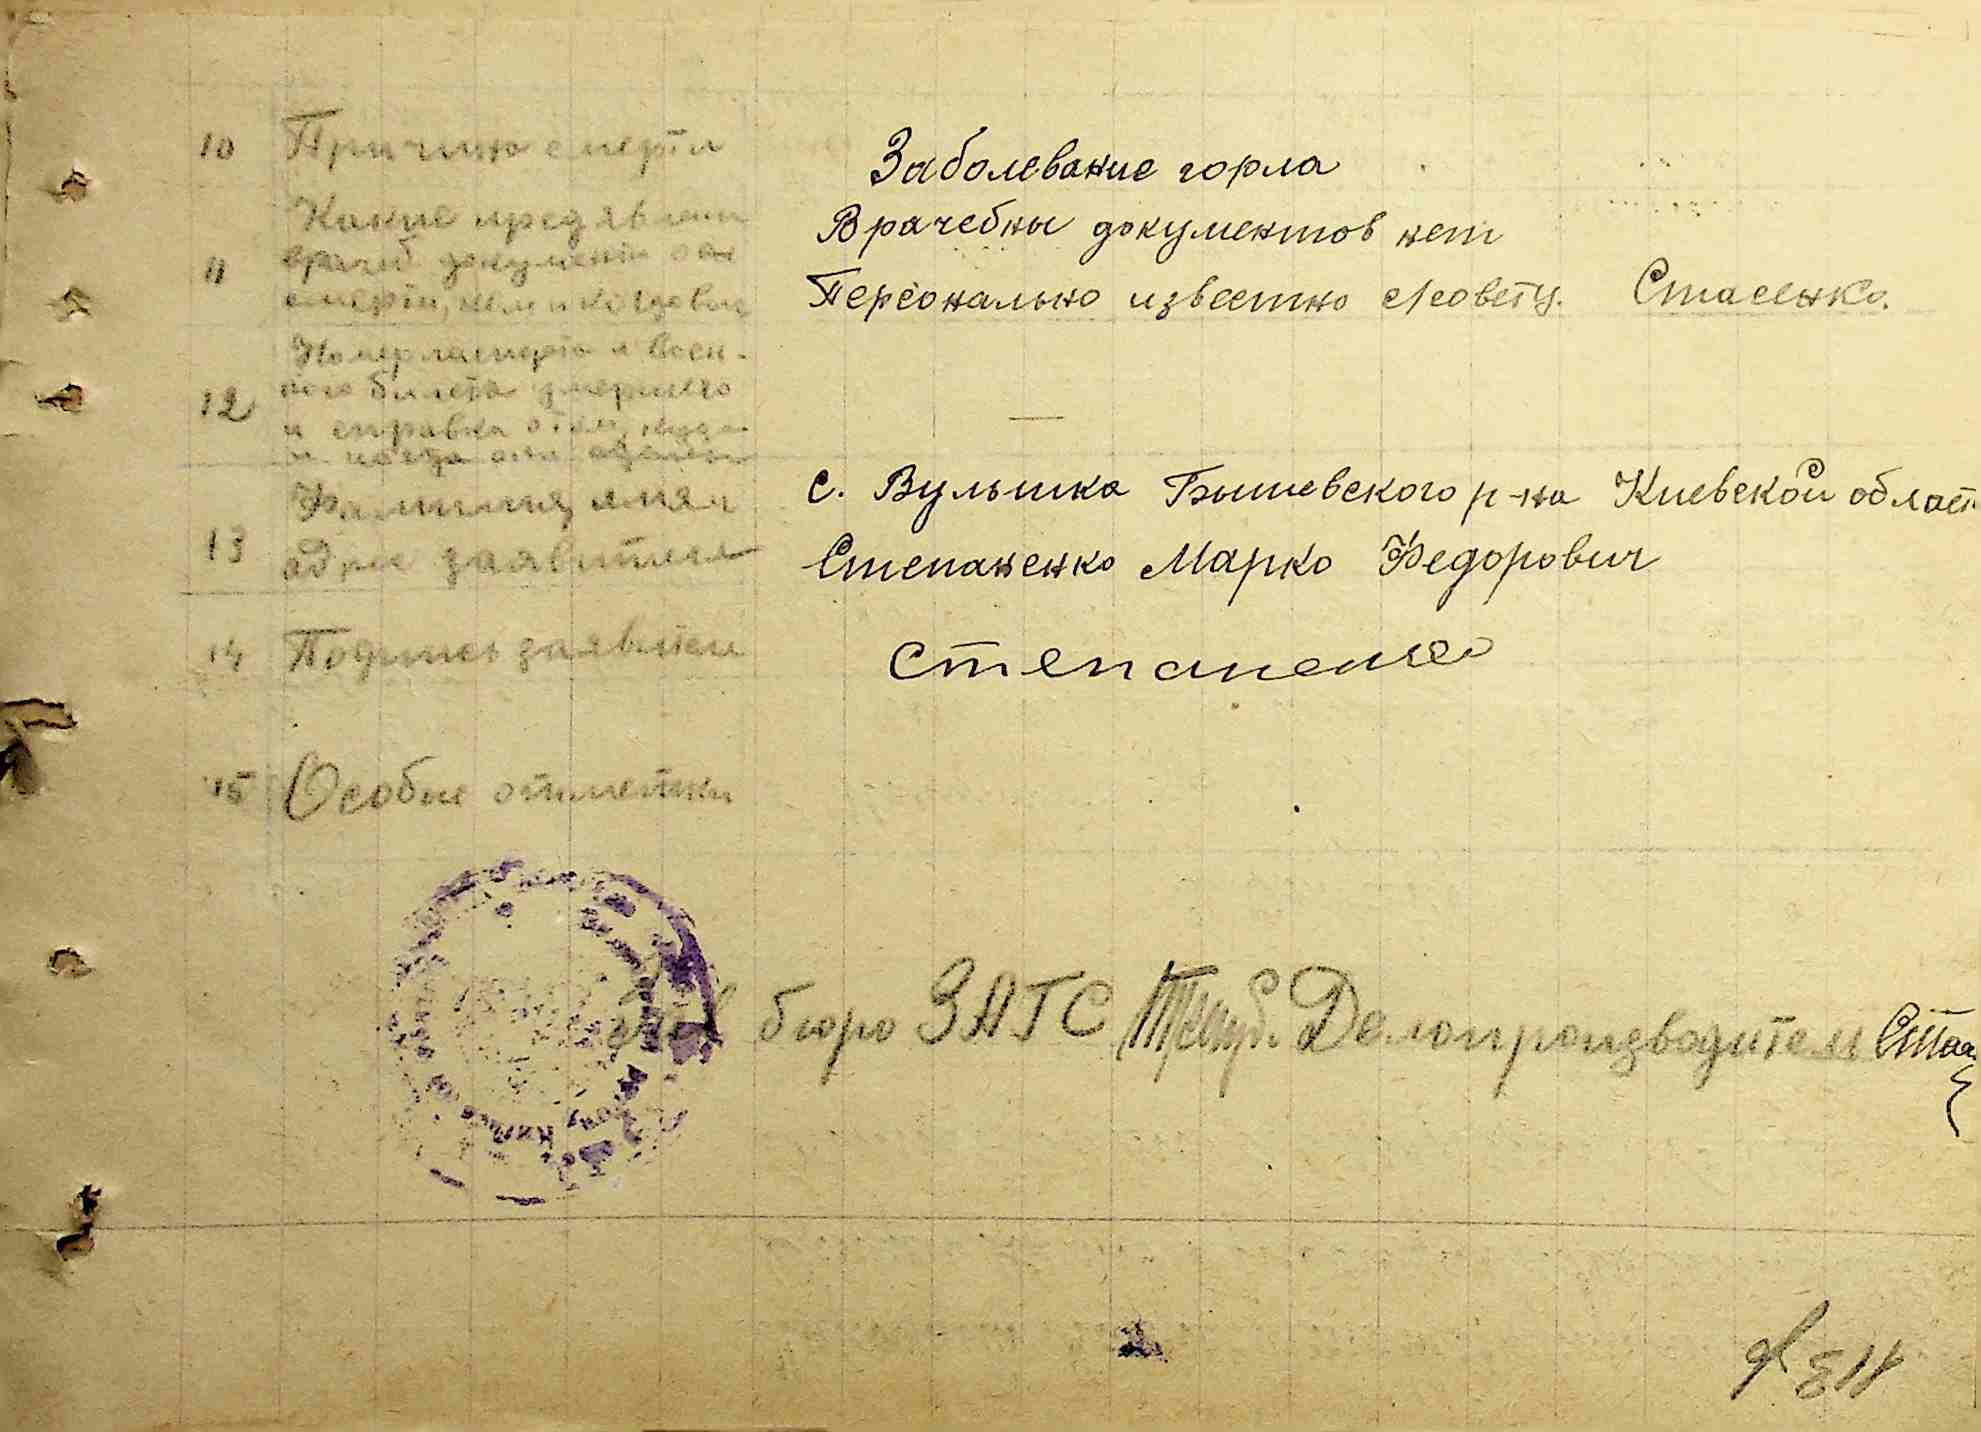 10 Причина смерти
Заболевание горла
Какие предявлени
Врачебны документов нет
11 врачеб. документы о
смерти, кем и когда выд
Персонально известно с/совету. Стасенко.
Номер паспорта и воен-
12 ного билета умершего
и справка о том, куда
и когда они сданы
—
Фамилия, имя и
с. Вулышка Бышевского р-на Киевской област
13 адрес заявителя
Степаненко Марко Федорович
14 Подпись заявителя
Степаненко
15 Особые отметки
Зав бюро ЗАГС Делопроизводитель